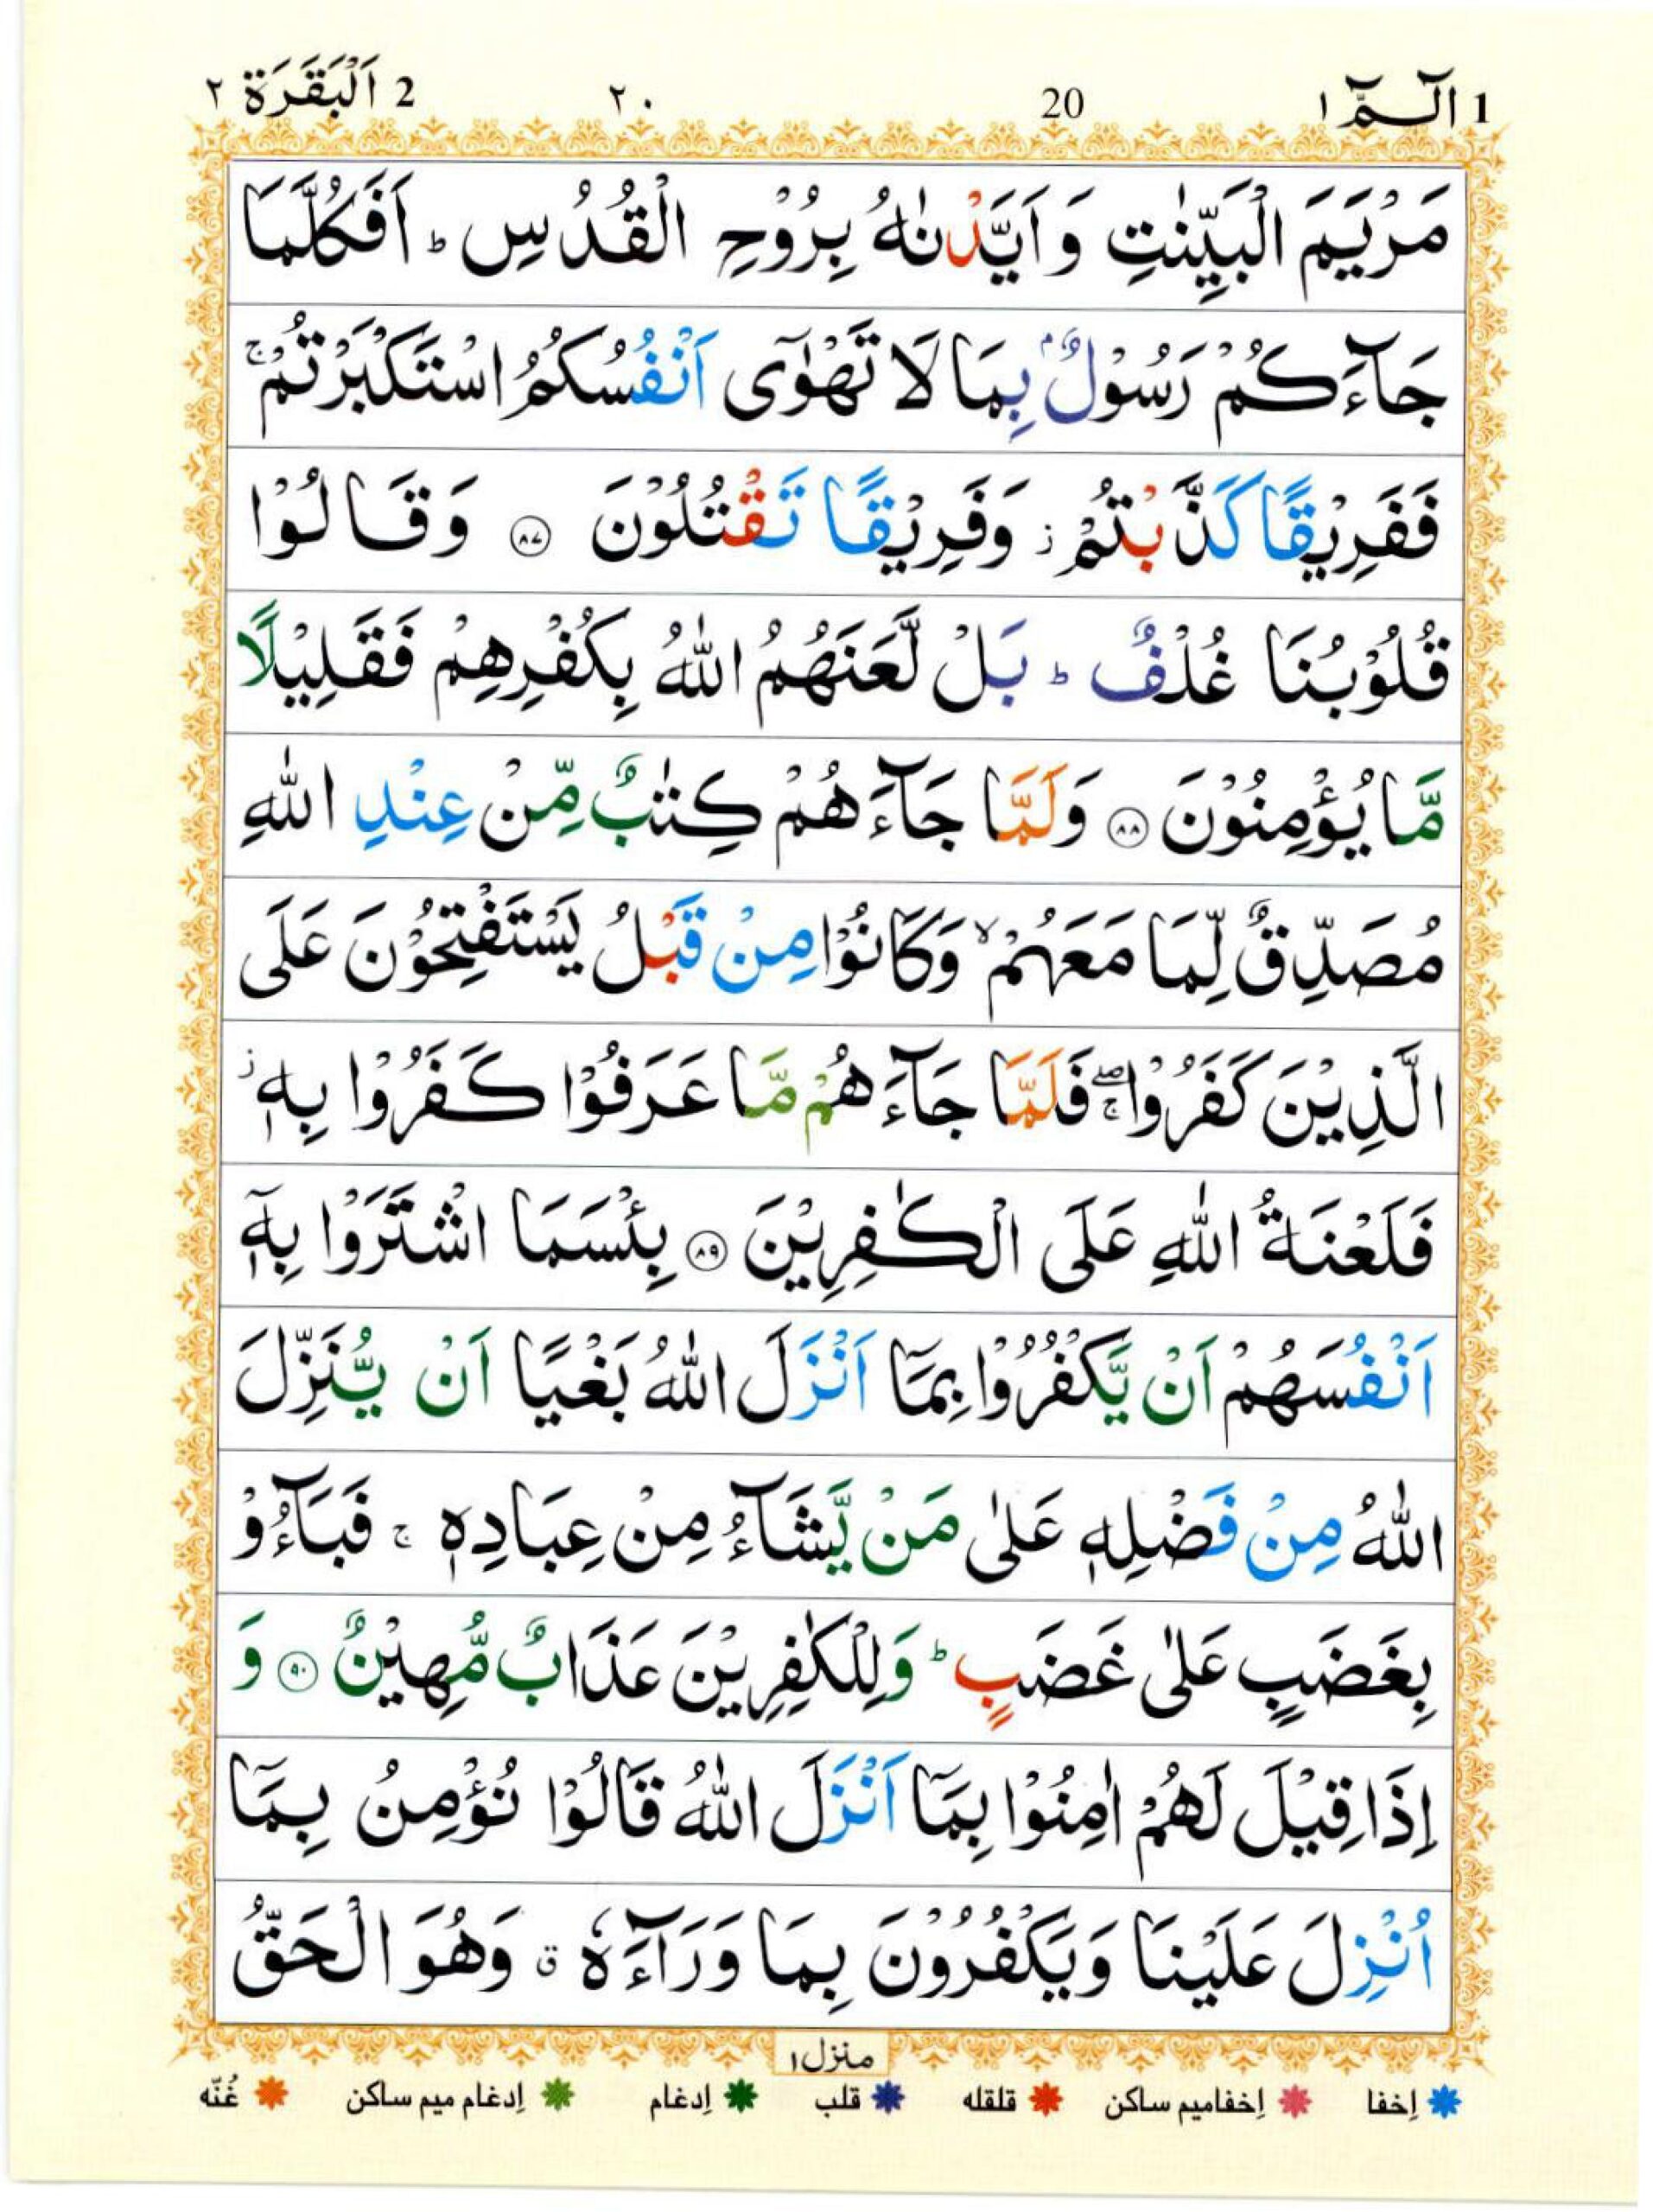 1 الٓـمّٓ ١ 20 ٢٠ 2 اَلْبَقَرَة ٢
مَرْيَمَ الْبَيِّنٰتِ وَ اَيَّدْنٰهُ بِرُوْحِ الْقُدُسِ ؕ اَفَكُلَّمَا
جَآءَكُمْ رَسُوْلٌۢ بِمَا لَا تَهْوٰۤى اَنْفُسُكُمُ اسْتَكْبَرْتُمْ ۚ
فَفَرِيْقًا كَذَّبْتُمْ ؗ وَفَرِيْقًا تَقْتُلُوْنَ ۝٨٧ وَقَالُوْا
قُلُوْبُنَا غُلْفٌ ؕ بَلْ لَّعَنَهُمُ اللّٰهُ بِكُفْرِهِمْ فَقَلِيْلًا
مَّا يُؤْمِنُوْنَ ۝٨٨ وَلَمَّا جَآءَهُمْ كِتٰبٌ مِّنْ عِنْدِ اللّٰهِ
مُصَدِّقٌ لِّمَا مَعَهُمْ ۙ وَكَانُوْا مِنْ قَبْلُ يَسْتَفْتِحُوْنَ عَلَى
الَّذِيْنَ كَفَرُوْا ۖۚ فَلَمَّا جَآءَهُمْ مَّا عَرَفُوْا كَفَرُوْا بِهٖ ؗ
فَلَعْنَةُ اللّٰهِ عَلَى الْكٰفِرِيْنَ ۝٨٩ بِئْسَمَا اشْتَرَوْا بِهٖۤ
اَنْفُسَهُمْ اَنْ يَّكْفُرُوْا بِمَاۤ اَنْزَلَ اللّٰهُ بَغْيًا اَنْ يُّنَزِّلَ
اللّٰهُ مِنْ فَضْلِهٖ عَلٰى مَنْ يَّشَآءُ مِنْ عِبَادِهٖ ۚ فَبَآءُوْ
بِغَضَبٍ عَلٰى غَضَبٍ ؕ وَلِلْكٰفِرِيْنَ عَذَابٌ مُّهِيْنٌ ۝٩٠ وَ
اِذَا قِيْلَ لَهُمْ اٰمِنُوْا بِمَاۤ اَنْزَلَ اللّٰهُ قَالُوْا نُؤْمِنُ بِمَاۤ
اُنْزِلَ عَلَيْنَا وَيَكْفُرُوْنَ بِمَا وَرَآءَهٗ ۗ وَهُوَ الْحَقُّ
منزل ١
إخفا إخفاميم ساكن قلقله قلب إدغام إدغام ميم ساكن غُنّه